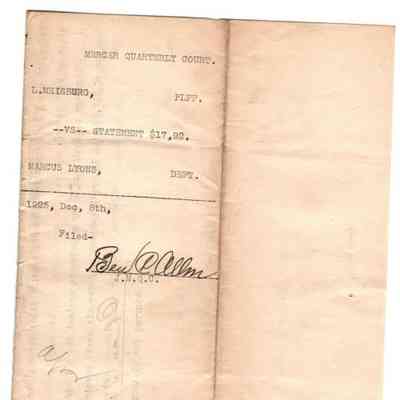 MERCER QUARTERLY COURT.
L.MEISBURG,
PLFF.
--VS-- STATEMENT $17,92.
MARCUS LYONS,
DEFT.
1925, Dec, 8th,
Filed-
Ben C Allen